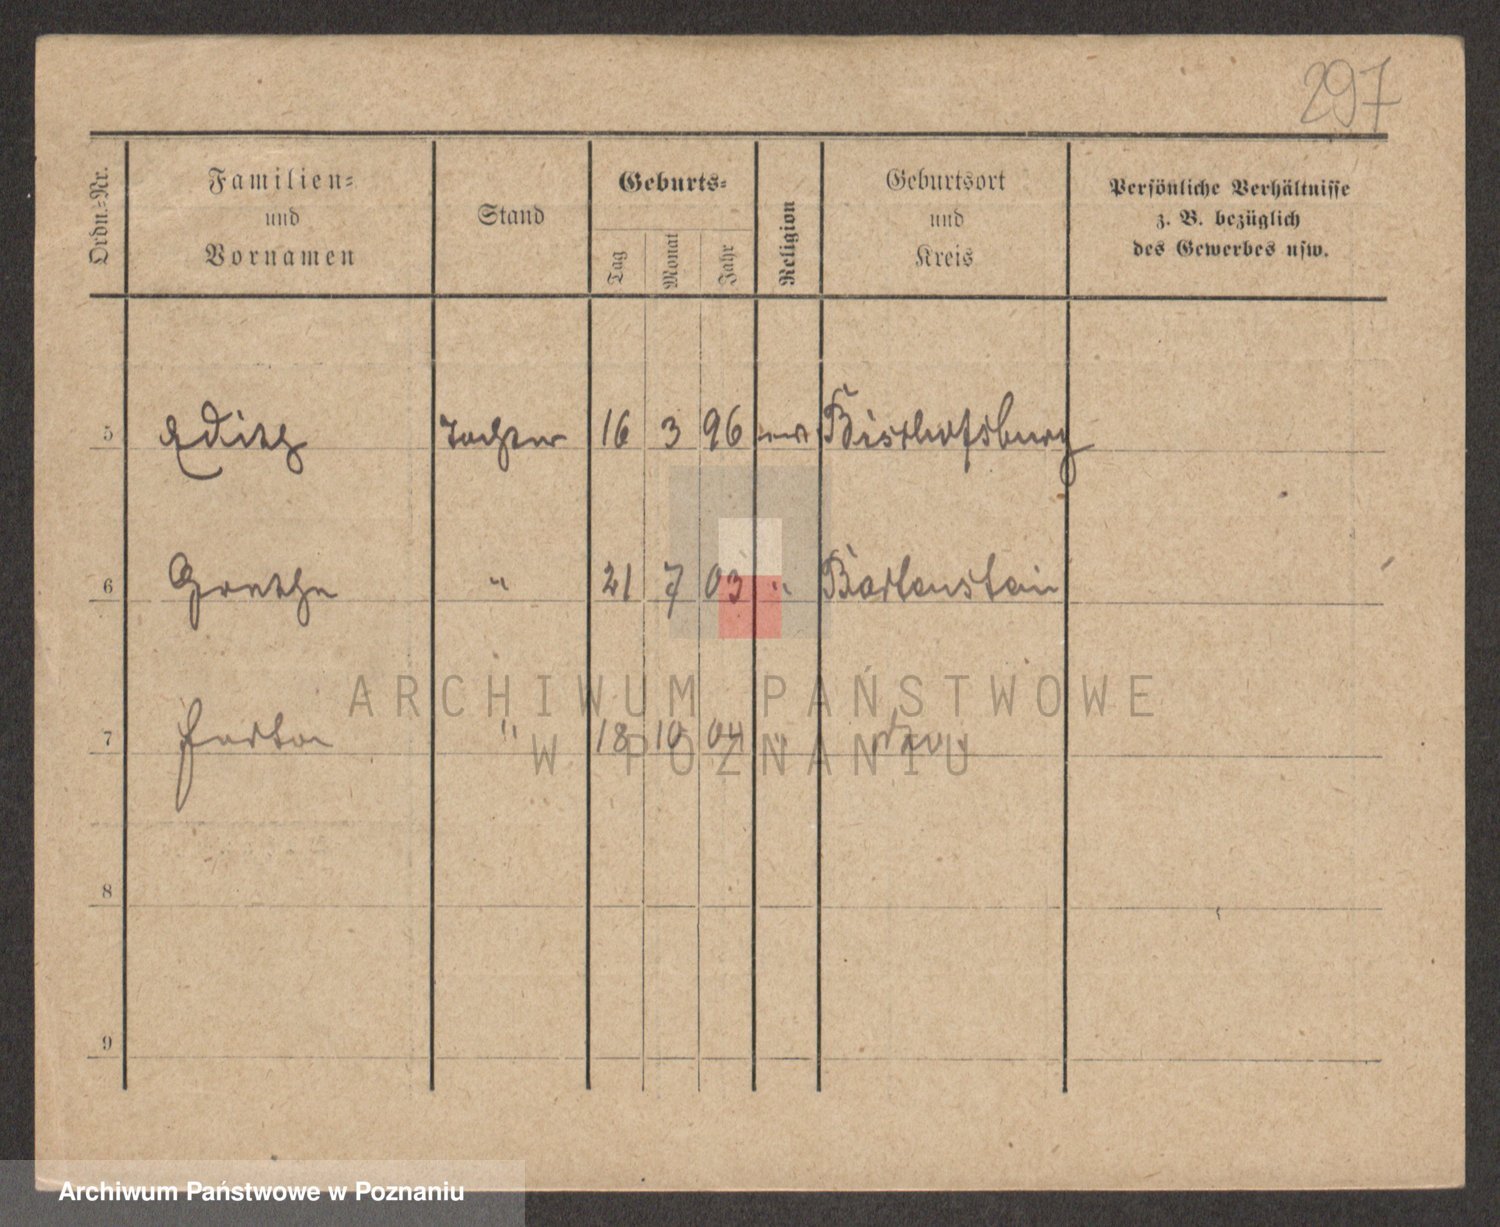 297
Ordn.-Nr.
Familien-
und
Vornamen
Stand
Geburts-
Tag
Monat
Jahr
Religion
Geburtsort
und
Kreis
Persönliche Verhältnisse
z. B. bezüglich
des Gewerbes usw.
5 Edith Tochter 16 3 96 Bischofsburg
6 Grethe " 21 7 03 " Bartenstein
7 " 18 10 04 "
8
9
ARCHIWUM PAŃSTWOWE
W POZNANIU
Archiwum Państwowe w Poznaniu